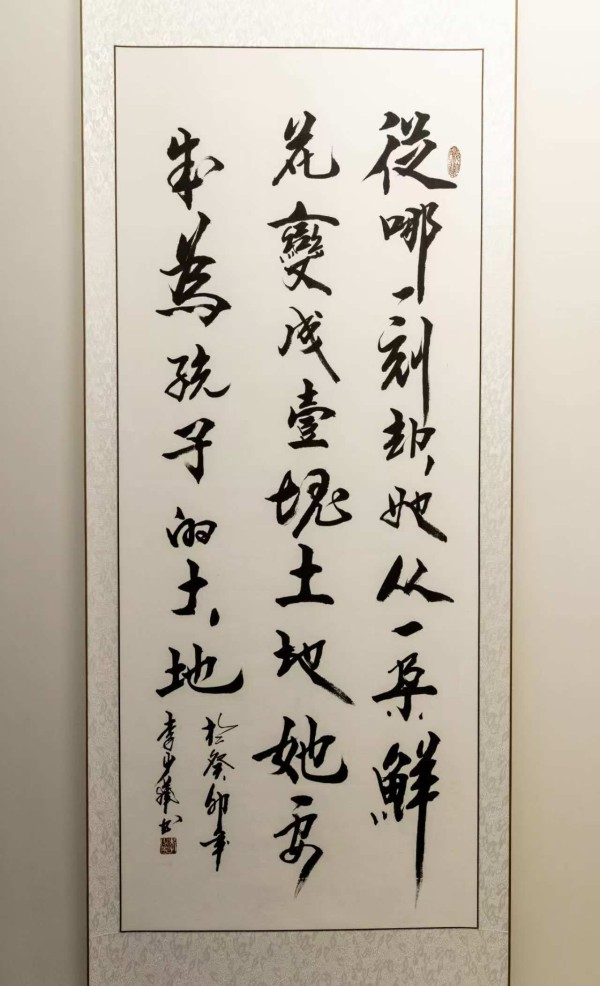 從哪一刻起她从一朵鮮
花變成壹塊土地她要
成為孩子的土地
於癸卯年
李少華书